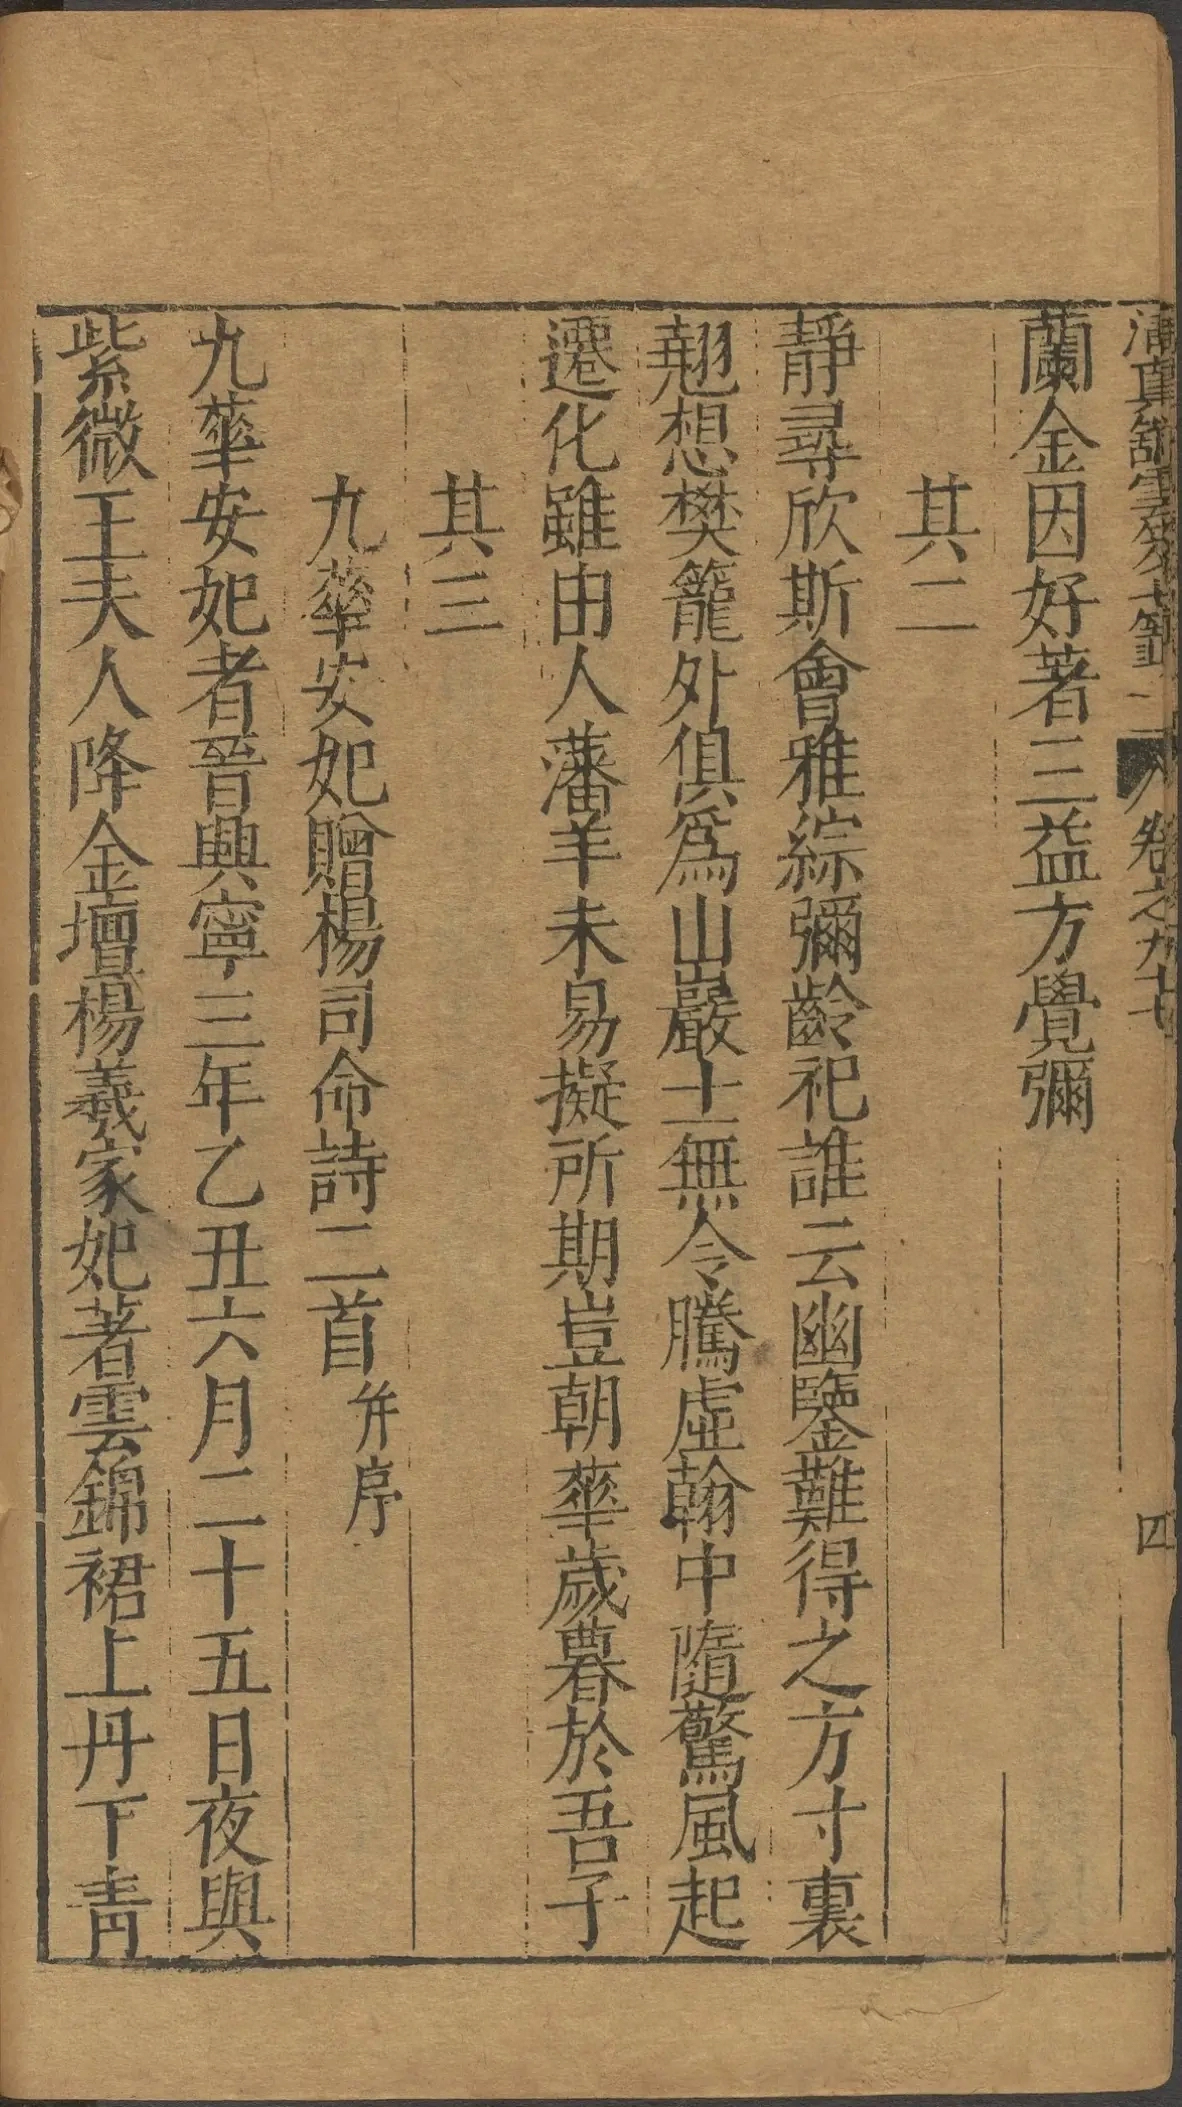 清真館雲笈七籤 卷之九十七 四
蘭金因好著三益方覺彌
其二
靜尋欣斯會雅綜彌齡祀誰云幽鑒難得之方寸裏
翹想樊籠外俱爲山巖士無令騰虛翰中隨驚風起
遷化雖由人藩羊未易擬所期豈朝華歲暮於吾子
其三
九華安妃贈楊司命詩二首并序
九華安妃者晉興寧三年乙丑六月二十五日夜與
紫微王夫人降金壇楊羲家妃著雲錦裙上丹下靑